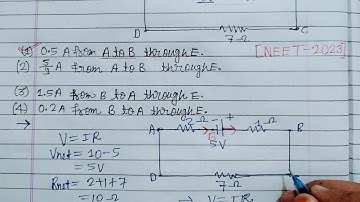 D
7Ω
C
(1) 0.5 A from A to B through E.
[NEET-2023]
(2) 5/9 A from A to B through E.
(3) 1.5A from B to A through E.
(4) 0.2A from B to A through E.
→
V = IR
Vnet = 10-5
= 5V
Rnet = 2+1+7
= 10Ω
A
2Ω
- +
E
5V
1Ω
B
D
7Ω
→ V = IR